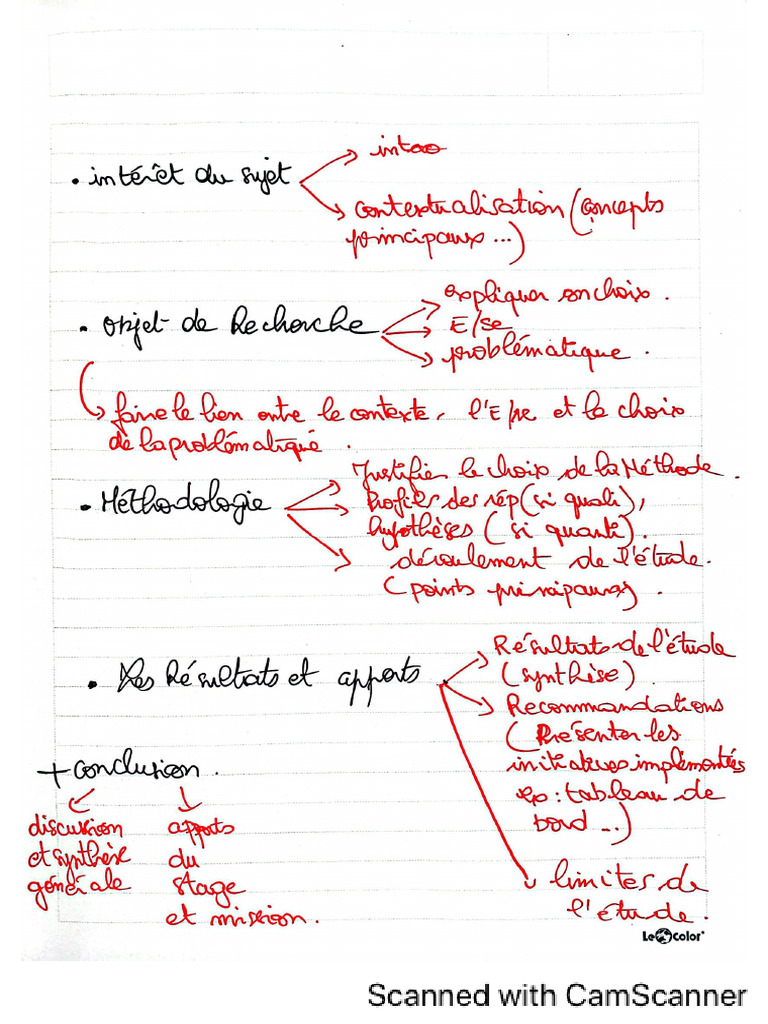 intro
• intérêt du sujet
contextualisation (concepts
principaux ...)
expliquer son choix.
• Objet de Recherche
E/se
problématique.
faire le lien entre le contexte, l'E/se et le choix
de la problématique.
Justifier le choix de la Méthode.
• Méthodologie
Profiles des rép (si quali),
hypothèses (si quanti).
déroulement de l'étude.
(points principaux).
Résultats de l'étude
(synthèse).
• Les Résultats et apports
Recommandations
(Présenter les
initiatives implémentées
ex : tableau de
bord ...)
limites de
l'étude.
+ conclusion.
discussion
et synthèse
générale
apports
du
stage
et mission.
LeColor
Scanned with CamScanner